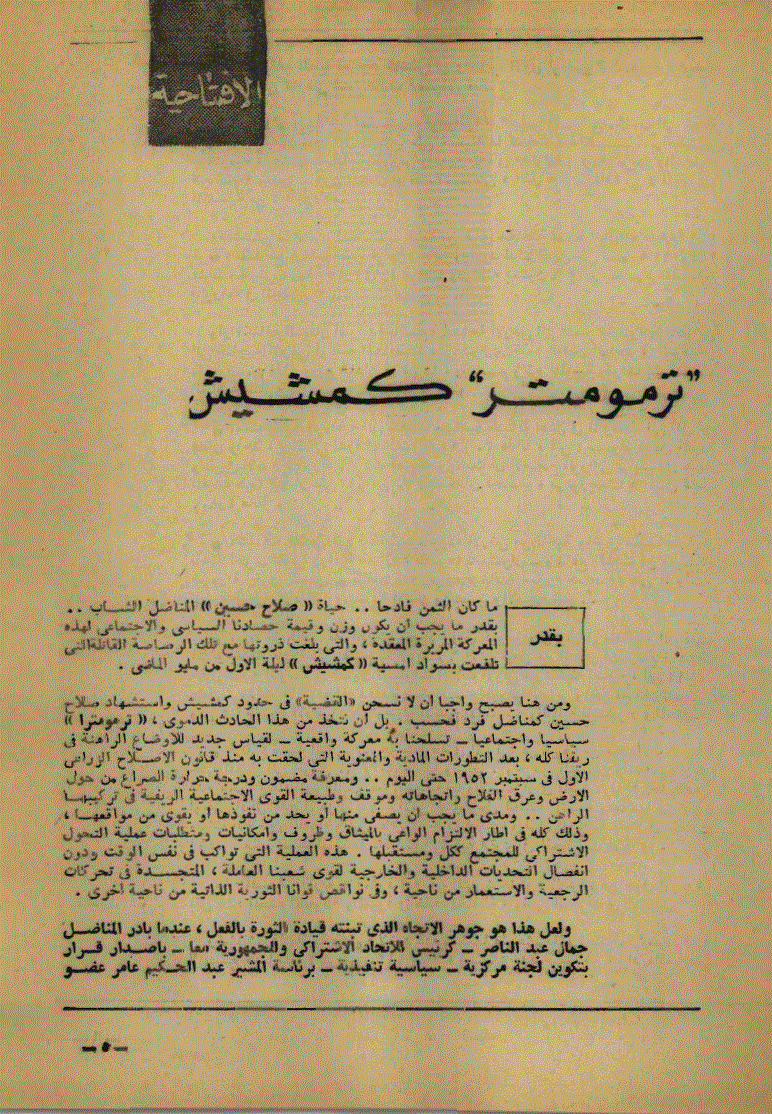 الافتتاحية
"ترمومتر" كمشيش
بقدر
ما كان الثمن فادحا .. حياة « صلاح حسين » المناضل الشاب ..
بقدر ما يجب أن يكون وزن وقيمة حصادنا السياسى والاجتماعى لهذه
المعركة المريرة المعقدة ، والتى بلغت ذروتها مع تلك الرصاصة القاتلة التى
تلفعت بسواد امسية « كمشيش » ليلة الاول من مايو الماضى .
ومن هنا يصبح واجبا أن لا نسجن «القضية» فى حدود كمشيش واستشهاد صلاح
حسين كمناضل فرد فحسب . بل أن نتخذ من هذا الحادث الدموى ، « ترمومترا »
سياسيا واجتماعيا – تسلحنا به معركة واقعية – لقياس جديد للأوضاع الراهنة فى
ريفنا كله ، بعد التطورات المادية والمعنوية التى لحقت به منذ قانون الاصلاح الزراعى
الاول فى سبتمبر ١٩٥٢ حتى اليوم .. ومعرفة مضمون ودرجة حرارة الصراع من حول
الارض وعرق الفلاح واتجاهاته وموقف وطبيعة القوى الاجتماعية الريفية فى تركيبها
الراهن .. ومدى ما يجب أن يصفى منها أو يحد من نفوذها أو يقوى من مواقعها ،
وذلك كله فى اطار الالتزام الواعى بالميثاق وظروف وامكانيات ومتطلبات عملية التحول
الاشتراكى للمجتمع ككل ومستقبلها . هذه العملية التى تواكب فى نفس الوقت ودون
انفصال التحديات الداخلية والخارجية لقوى شعبنا العاملة ، المتجسدة فى تحركات
الرجعية والاستعمار من ناحية ، وفى نواقص قوانا الثورية الذاتية من ناحية اخرى .
ولعل هذا هو جوهر الاتجاه الذى تبنته قيادة الثورة بالفعل ، عندما بادر المناضل
جمال عبد الناصر – كرئيس للاتحاد الاشتراكى والجمهورية معا – باصدار قرار
بتكوين لجنة مركزية – سياسية تنفيذية – برئاسة المشير عبد الحكيم عامر عضو
– ٥ –